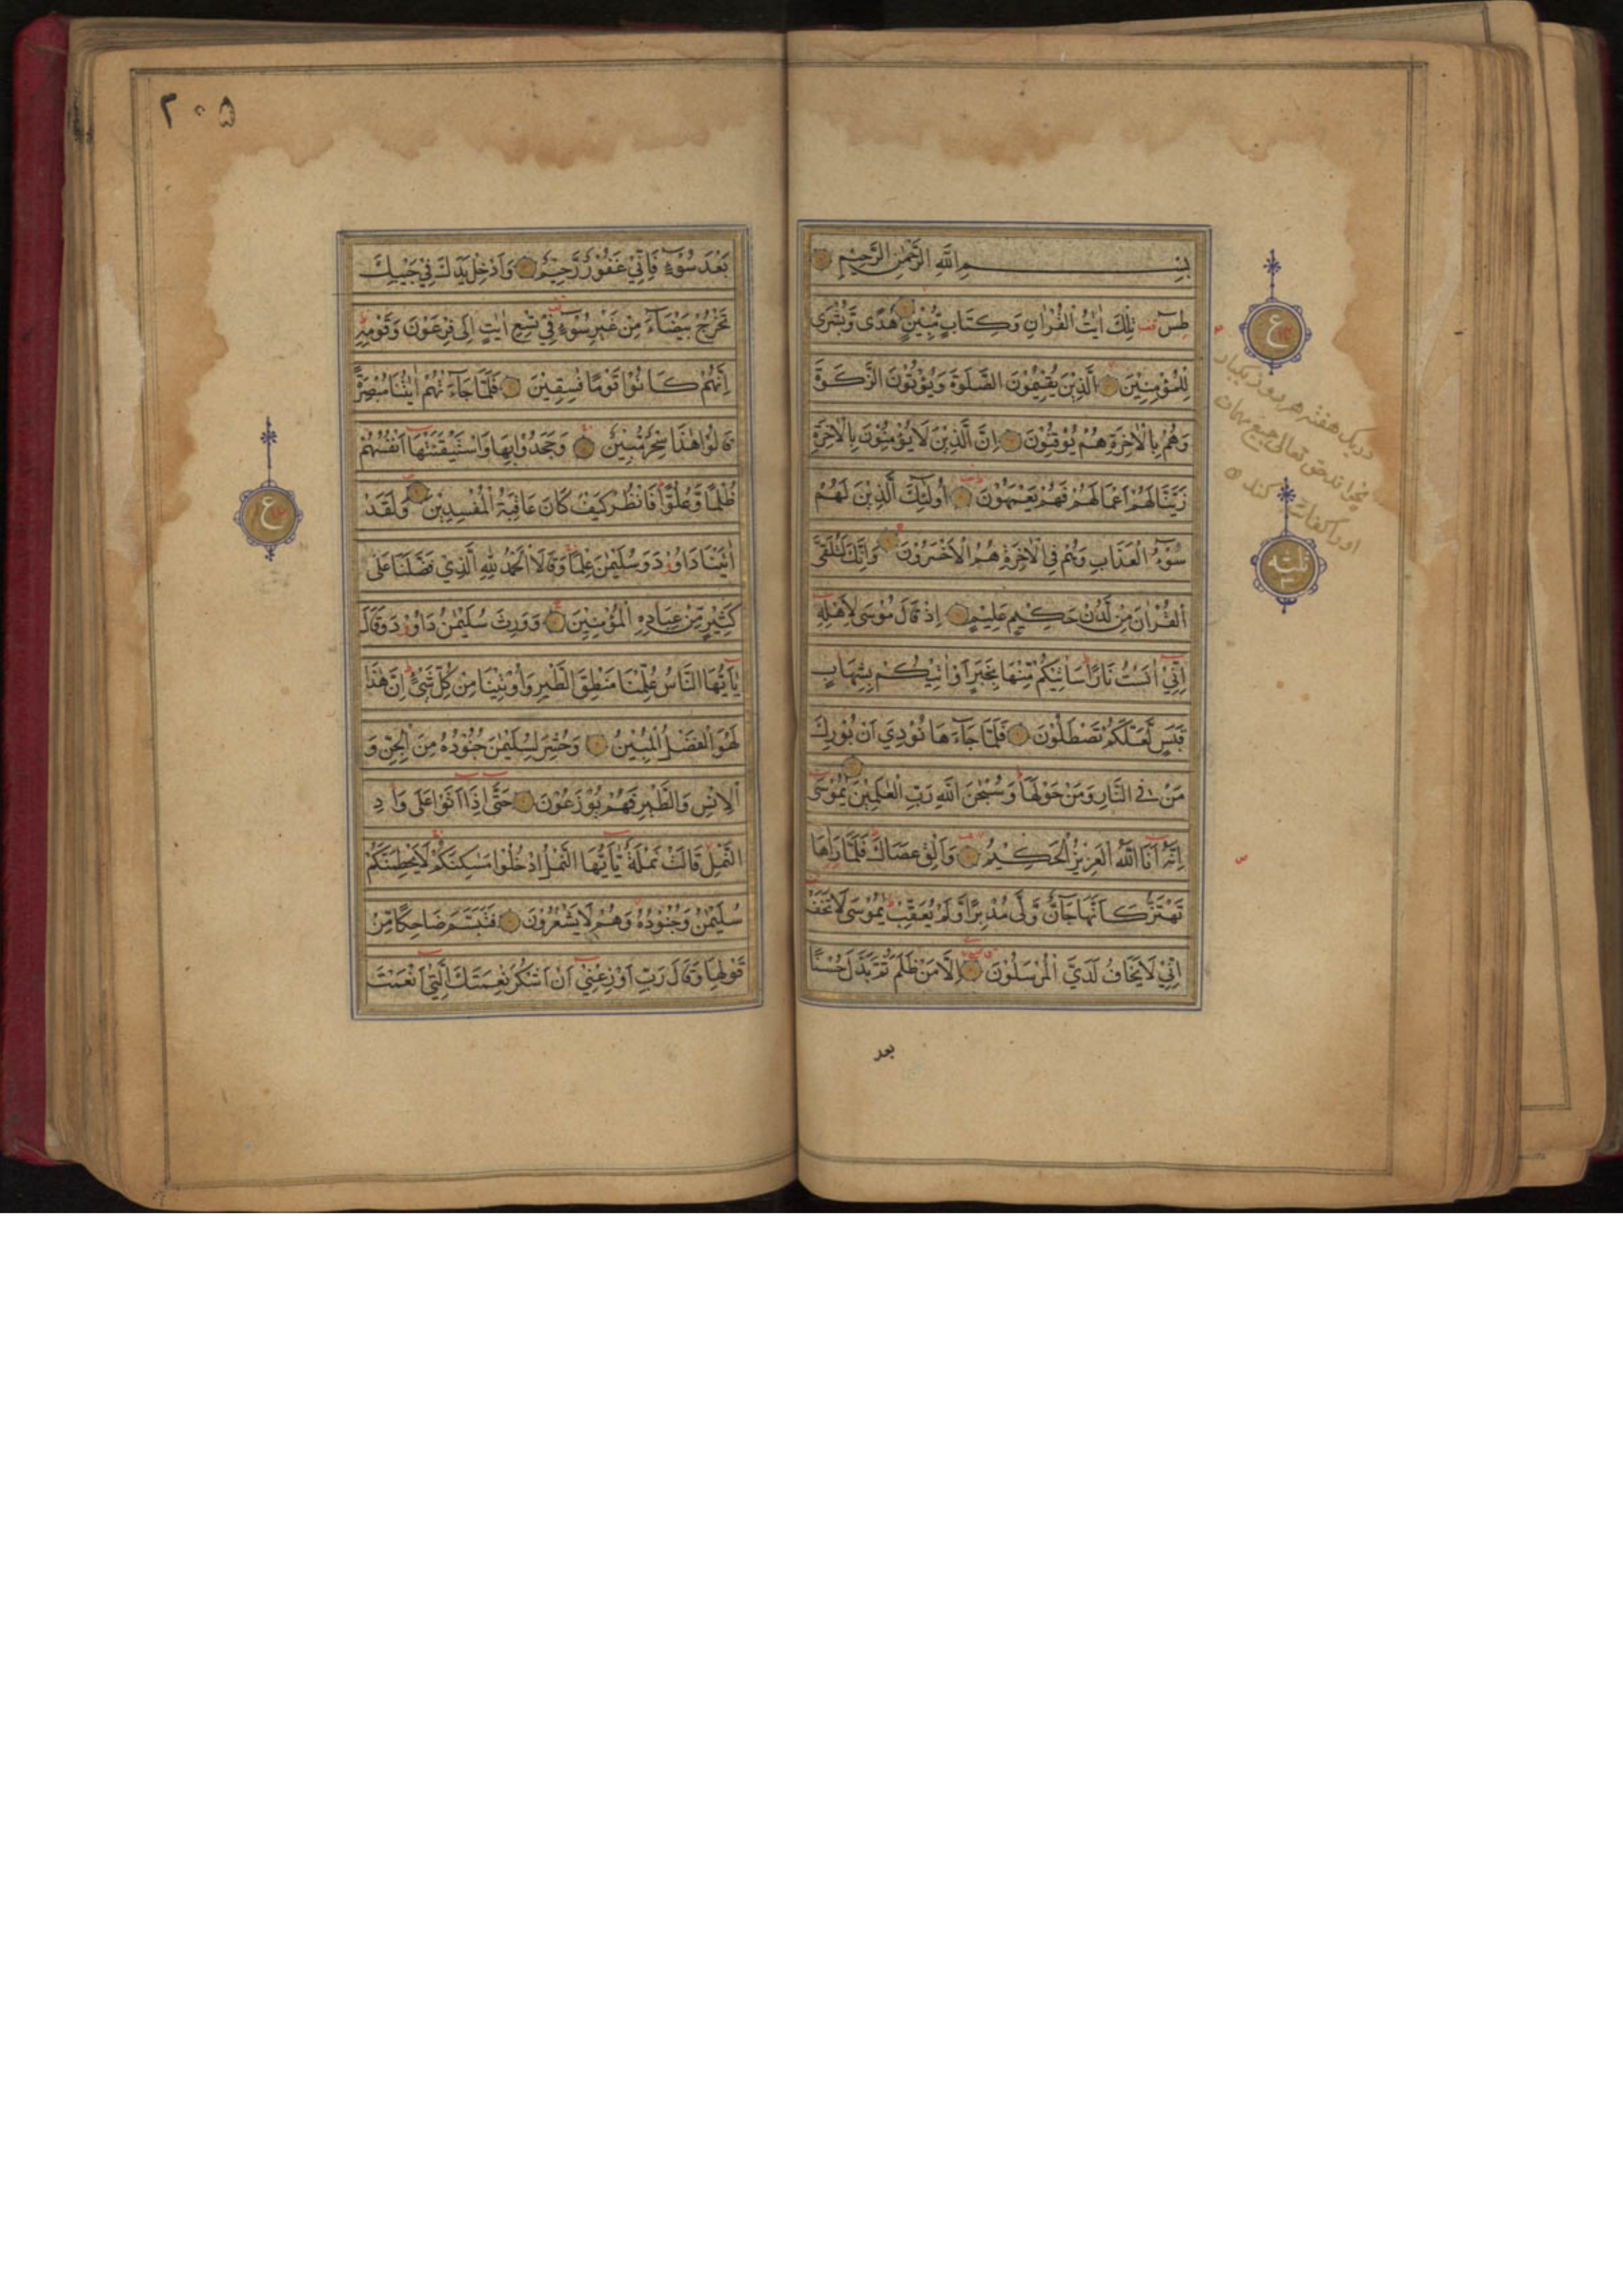 بِسْمِ اللّٰهِ الرَّحْمٰنِ الرَّحِيْمِ
طٰسٓ تِلْكَ اٰيٰتُ الْقُرْاٰنِ وَكِتَابٍ مُّبِيْنٍ هُدًى وَّبُشْرٰى
لِلْمُؤْمِنِيْنَ الَّذِيْنَ يُقِيْمُوْنَ الصَّلٰوةَ وَيُؤْتُوْنَ الزَّكٰوةَ
وَهُمْ بِالْاٰخِرَةِ هُمْ يُوْقِنُوْنَ اِنَّ الَّذِيْنَ لَا يُؤْمِنُوْنَ بِالْاٰخِرَةِ
زَيَّنَّا لَهُمْ اَعْمَالَهُمْ فَهُمْ يَعْمَهُوْنَ اُولٰٓئِكَ الَّذِيْنَ لَهُمْ
سُوْٓءُ الْعَذَابِ وَهُمْ فِي الْاٰخِرَةِ هُمُ الْاَخْسَرُوْنَ وَاِنَّكَ لَتُلَقَّى
الْقُرْاٰنَ مِنْ لَّدُنْ حَكِيْمٍ عَلِيْمٍ اِذْ قَالَ مُوْسٰى لِاَهْلِهٖٓ
اِنِّيْٓ اٰنَسْتُ نَارًا سَاٰتِيْكُمْ مِّنْهَا بِخَبَرٍ اَوْ اٰتِيْكُمْ بِشِهَابٍ
قَبَسٍ لَّعَلَّكُمْ تَصْطَلُوْنَ فَلَمَّا جَآءَهَا نُوْدِيَ اَنْ بُوْرِكَ
مَنْ فِي النَّارِ وَمَنْ حَوْلَهَا وَسُبْحٰنَ اللّٰهِ رَبِّ الْعٰلَمِيْنَ يٰمُوْسٰٓى
اِنَّهٗٓ اَنَا اللّٰهُ الْعَزِيْزُ الْحَكِيْمُ وَاَلْقِ عَصَاكَ فَلَمَّا رَاٰهَا
تَهْتَزُّ كَاَنَّهَا جَآنٌّ وَّلّٰى مُدْبِرًا وَّلَمْ يُعَقِّبْ يٰمُوْسٰى لَا تَخَفْ
اِنِّيْ لَا يَخَافُ لَدَيَّ الْمُرْسَلُوْنَ اِلَّا مَنْ ظَلَمَ ثُمَّ بَدَّلَ حُسْنًا
بعد
ع
دریک هفته هر روز یکبار
ثلثة
٢٠٥
بَعْدَ سُوْٓءٍ فَاِنِّيْ غَفُوْرٌ رَّحِيْمٌ وَاَدْخِلْ يَدَكَ فِيْ جَيْبِكَ
تَخْرُجْ بَيْضَآءَ مِنْ غَيْرِ سُوْٓءٍ فِيْ تِسْعِ اٰيٰتٍ اِلٰى فِرْعَوْنَ وَقَوْمِهٖ
اِنَّهُمْ كَانُوْا قَوْمًا فٰسِقِيْنَ فَلَمَّا جَآءَتْهُمْ اٰيٰتُنَا مُبْصِرَةً
قَالُوْا هٰذَا سِحْرٌ مُّبِيْنٌ وَجَحَدُوْا بِهَا وَاسْتَيْقَنَتْهَآ اَنْفُسُهُمْ
ظُلْمًا وَّعُلُوًّا فَانْظُرْ كَيْفَ كَانَ عَاقِبَةُ الْمُفْسِدِيْنَ وَلَقَدْ
اٰتَيْنَا دَاوٗدَ وَسُلَيْمٰنَ عِلْمًا وَقَالَا الْحَمْدُ لِلّٰهِ الَّذِيْ فَضَّلَنَا عَلٰى
كَثِيْرٍ مِّنْ عِبَادِهِ الْمُؤْمِنِيْنَ وَوَرِثَ سُلَيْمٰنُ دَاوٗدَ وَقَالَ
يٰٓاَيُّهَا النَّاسُ عُلِّمْنَا مَنْطِقَ الطَّيْرِ وَاُوْتِيْنَا مِنْ كُلِّ شَيْءٍ اِنَّ هٰذَا
لَهُوَ الْفَضْلُ الْمُبِيْنُ وَحُشِرَ لِسُلَيْمٰنَ جُنُوْدُهٗ مِنَ الْجِنِّ وَ
الْاِنْسِ وَالطَّيْرِ فَهُمْ يُوْزَعُوْنَ حَتّٰٓى اِذَآ اَتَوْا عَلٰى وَادِ
النَّمْلِ قَالَتْ نَمْلَةٌ يّٰٓاَيُّهَا النَّمْلُ ادْخُلُوْا مَسٰكِنَكُمْ لَا يَحْطِمَنَّكُمْ
سُلَيْمٰنُ وَجُنُوْدُهٗ وَهُمْ لَا يَشْعُرُوْنَ فَتَبَسَّمَ ضَاحِكًا مِّنْ
قَوْلِهَا وَقَالَ رَبِّ اَوْزِعْنِيْٓ اَنْ اَشْكُرَ نِعْمَتَكَ الَّتِيْٓ اَنْعَمْتَ
ع